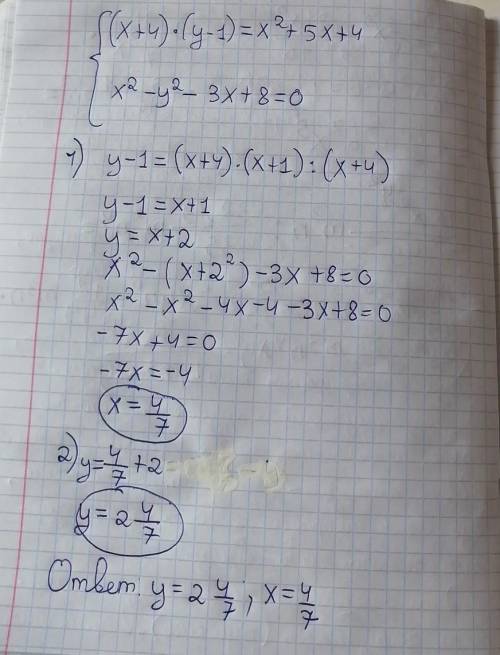 (x+4)·(y-1)=x²+5x+4
x²-y²-3x+8=0
1) y-1=(x+4)·(x+1):(x+4)
y-1=x+1
y=x+2
x²-(x+2²)-3x+8=0
x²-x²-4x-4-3x+8=0
-7x+4=0
-7x=-4
x=4/7
2) y=4/7+2
y=2 4/7
Ответ: y=2 4/7; x=4/7